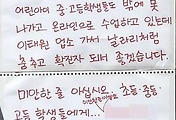 어린이며 중·고등학생들도 밖에 못
나가고 온라인으로 수업하고 있는데
이태원 업소 가서 날라리처럼
춤추고 확진자 되니 좋겠습니다.
미안한 줄 아십시오
초등·중등·
고등 학생들에게...